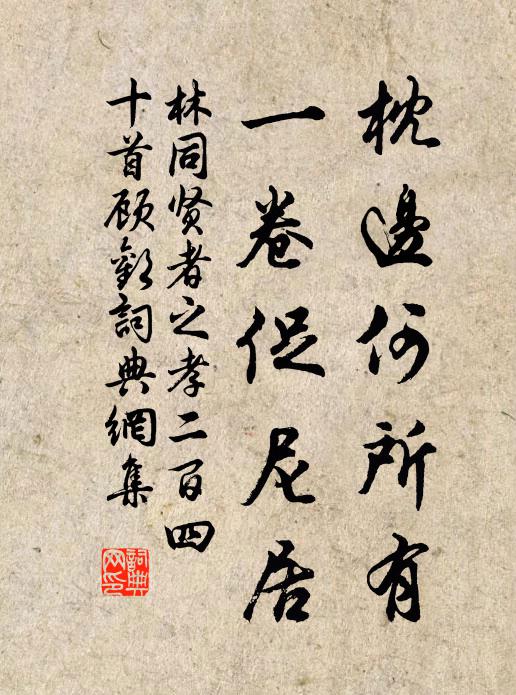 枕邊何所有
一卷促尼居
林同贤者之孝二百四
十首顾歡詞典網集
詞典
网印